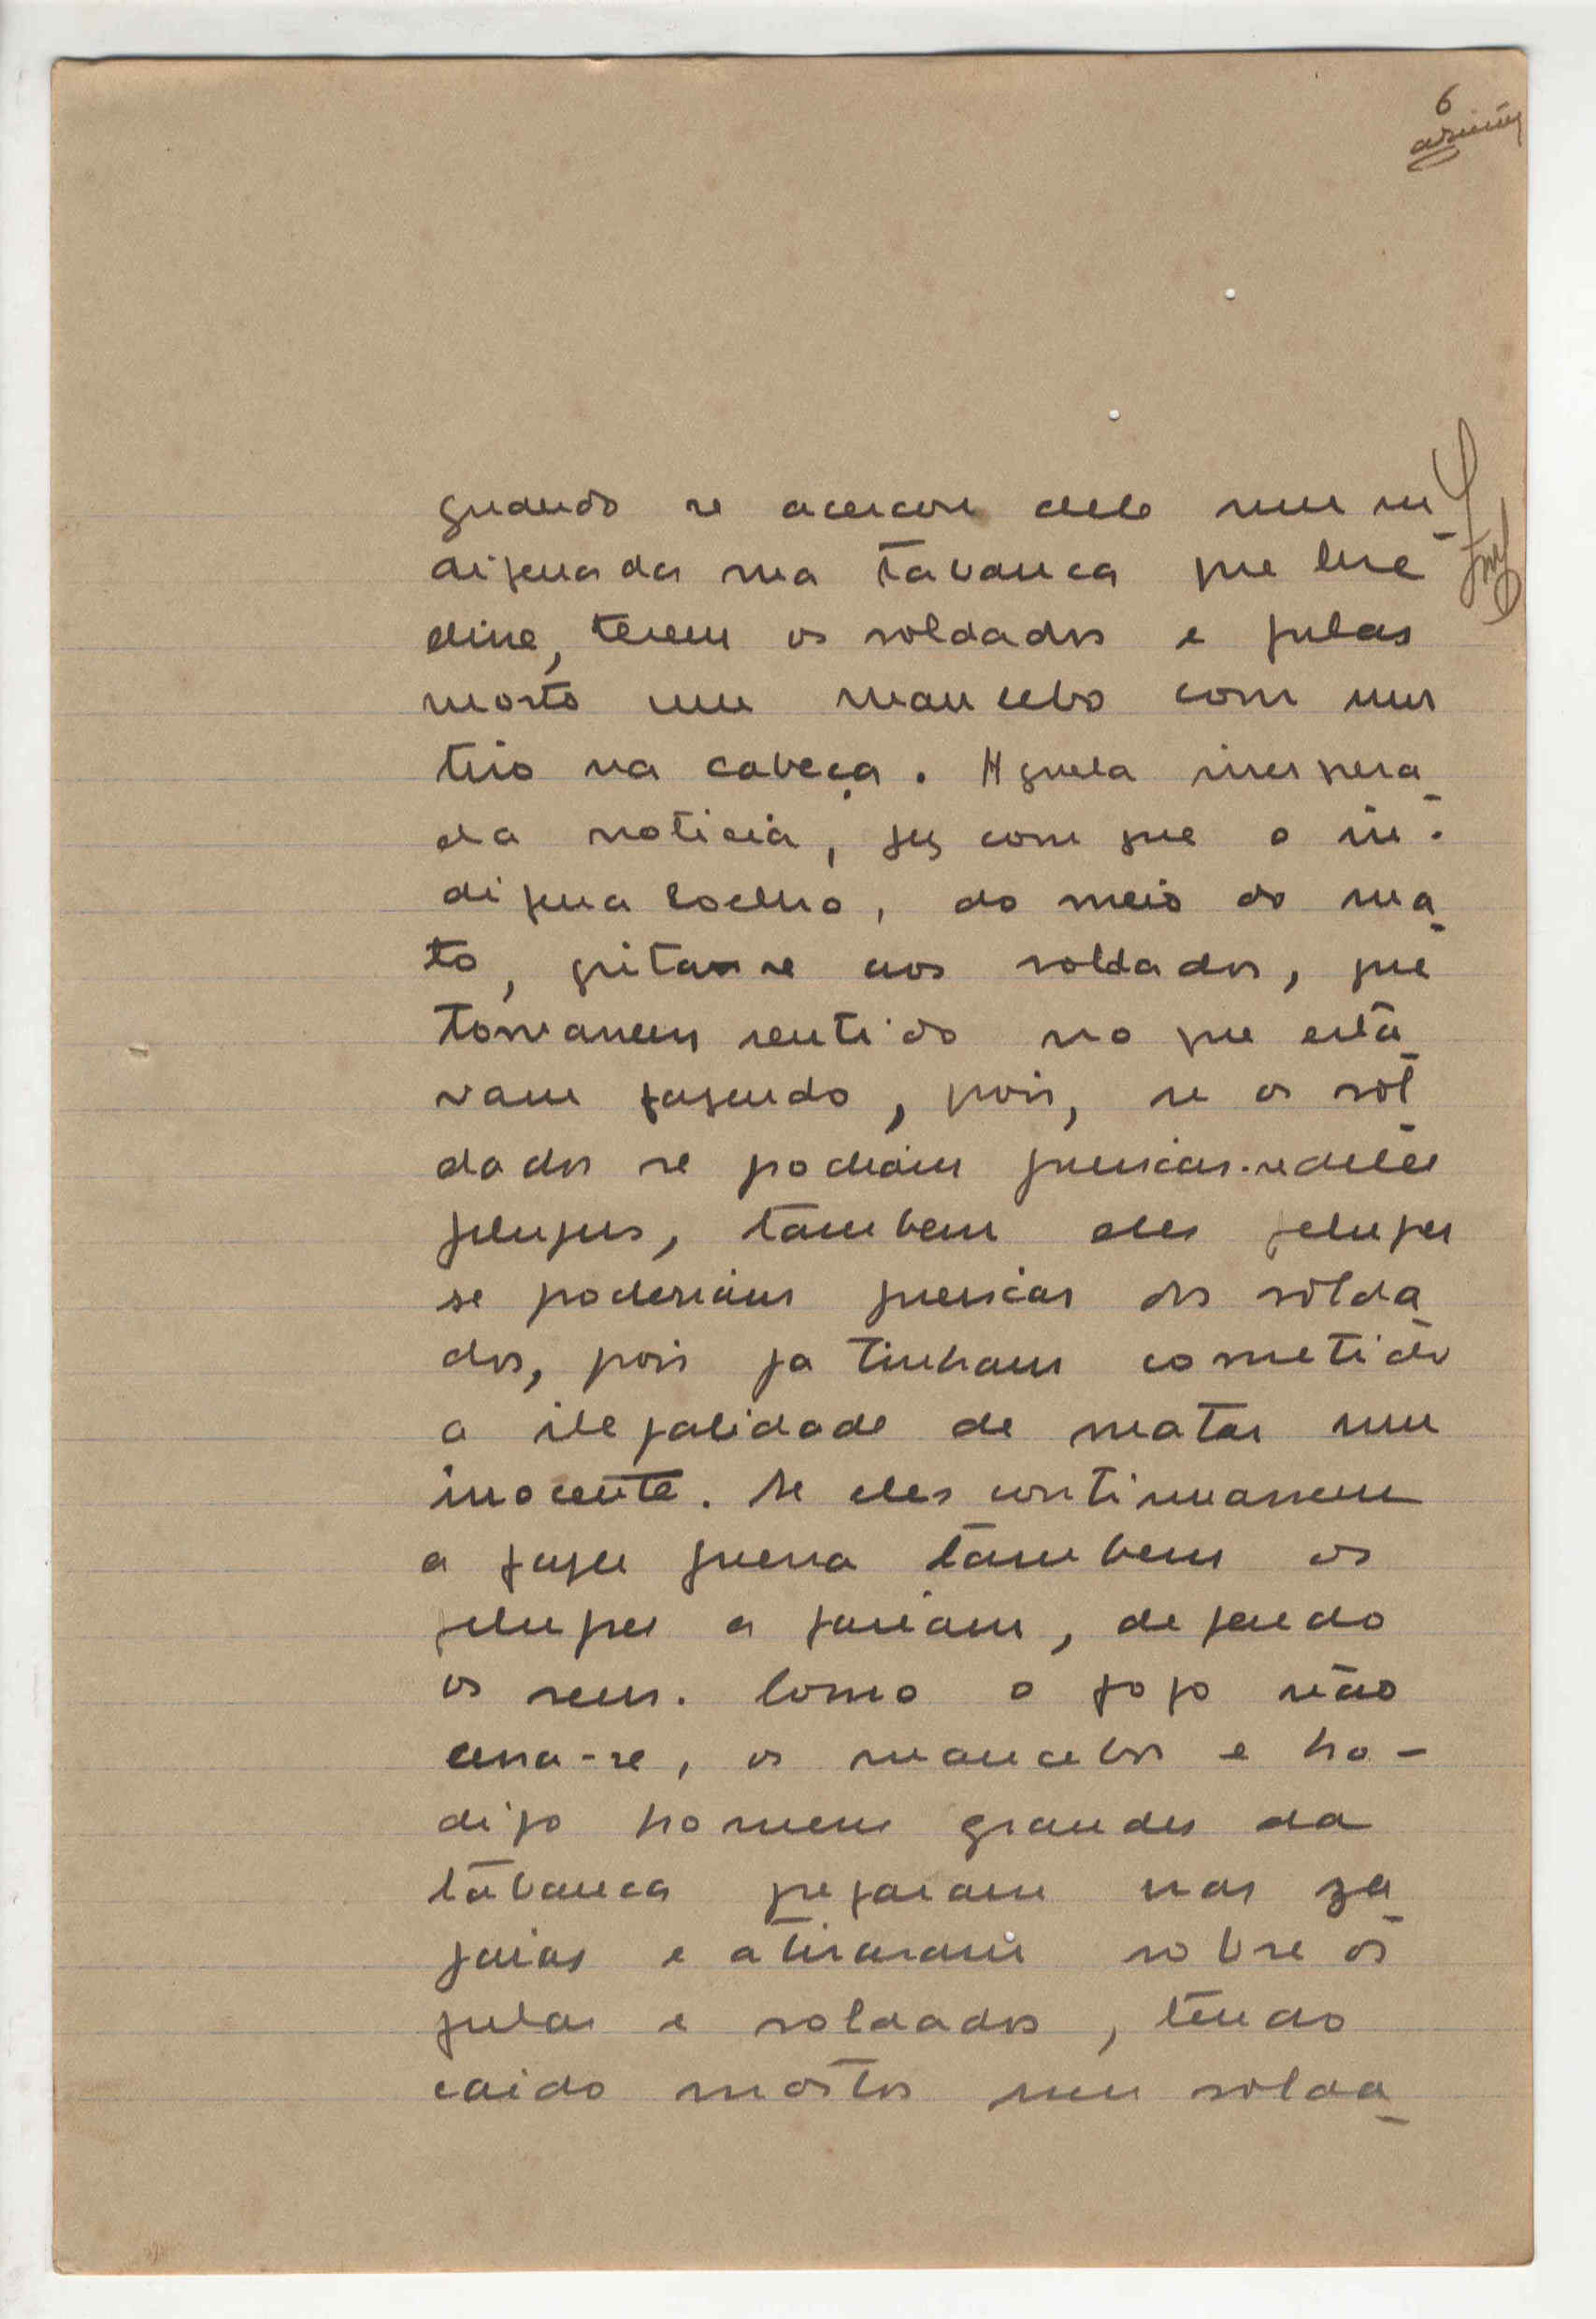 6
quando se acercou dele um in-
digena da sua tabanca que lhe
disse, terem os soldados e fulas
morto um mancebo com um
tiro na cabeça. Aquela inespera-
da noticia, fez com que o in-
digena Coelho, do meio do ma-
to, gritasse aos soldados, que
tomassem sentido no que esta-
vam fazendo, pois, se os sol-
dados se podiam queixar-se deles
felupes, tambem eles felupes
se poderiam queixar dos solda-
dos, pois ja tinham cometido
a ilegalidade de matar um
inocente. Se eles continuassem
a fazer guerra tambem os
felupes a fariam, defendo
os seus. Como o fogo não
cessa-se, os mancebos e ho-
digo homens grandes da
tabanca pegaram nas za-
gaias e atiraram sobre os
fulas e soldados, tendo
caido mortos um solda-